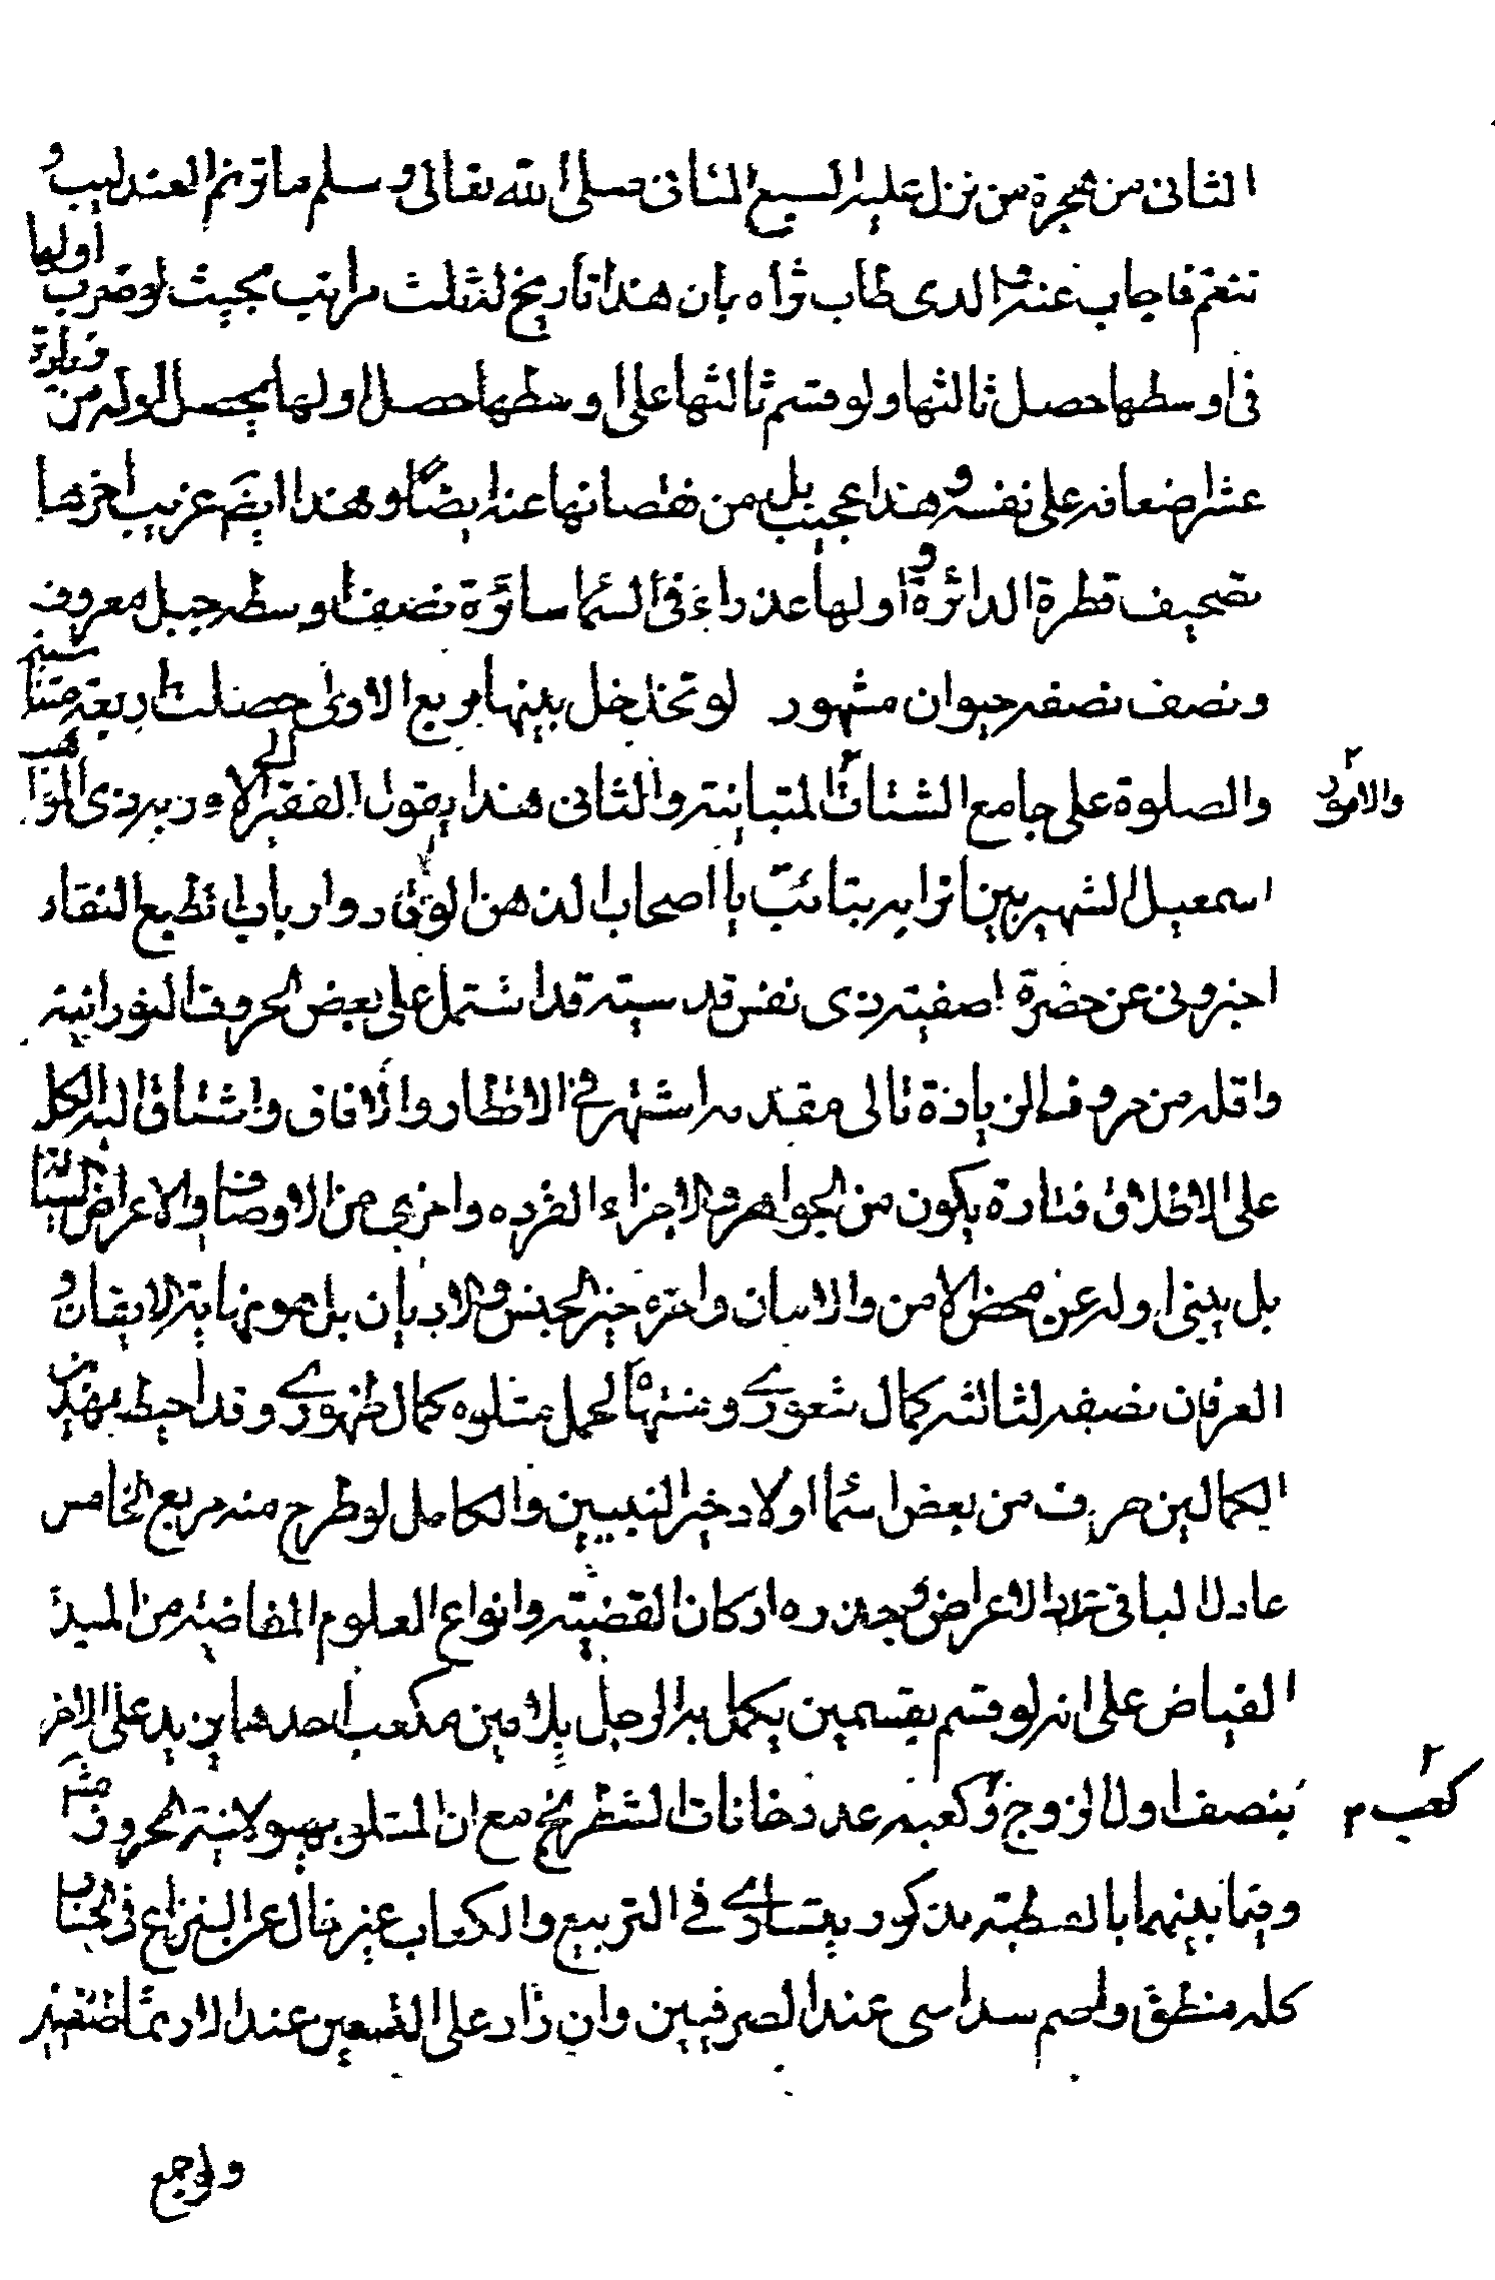 الثانى من هجرة من نزل عليه السبع المثانى صلى الله تعالى وسلم ما ترنم العندليب و
تنغم فاجاب عنه الدى طاب ثراه بان هذا تاريخ لثلث مراتب بحيث لو ضرب اولها
فى اوسطها حصل ثالثها ولو قسم ثالثها على اوسطها حصل اولها يحصل اوله من زيادة
عشر اضعافه على نفسه وهذا عجيب بل من نقصانها عنه ايضا وهذا ايضا غريب اخرها
تصحيف قطرة الدائرة و اولها عذراء فى السما سائرة نصف اوسطه جبل معروف
ونصف نصفه حيوان مشهور لو تخلخل بينها مربع الاولى حصلت اربعة متناسبة
والصلوة على جامع الشتات المتباينة والثانى هذا يقول الفقير الى ذى المواهب
والامور
اسمعيل الشهير بين اترابه بتائب يا اصحاب الذهن الوقاد وارباب الطبع النقاد
اخبرونى عن حضرة اصفية ذى نفس قدسية قد اشتمل على بعض الحروف النورانية
واقله من حروف الزيادة تالى مقدمه اشتهر فى الاقطار والافاق واشتاق اليه الكل
على الاطلاق فتارة يكون من الجواهر والاجزاء الفرده واخرى من الاوصاف والاعراض
بل يبنى اوله عن محض الامن والامان واخره خير الجنس والاديان بل هو نهاية الايقان و
العرفان نصفه لثالثه كمال شعورى ومنتهاه لحمل متلوه كمال ظهورى وقد احيط بهذين
الكمالين حرف من بعض اسما اولاد خير النبيين والكامل لو طرح منه مربع الخامس
عادل الباقى الاعراض وجذره اركان القضية وانواع العلوم المفاضة من المبدأ
الفياض على انه لو قسم بقسمين يكمل به الوجل بلا مين مكعب احدهما يزيد على الاخر
بنصف اول الزوج وكعبه عدد خانات الشطرنج مع ان المتلو بهيولانية الحروف
كعب م
وفيما بينهما بالعطية مذكور يتساوى فى التربيع والكعاب غير خال عن النزاع فى
كله منطق واصم سداسى عند الصرفيين وان زاد على التسعين عند الارثماطيقيين
واجمع